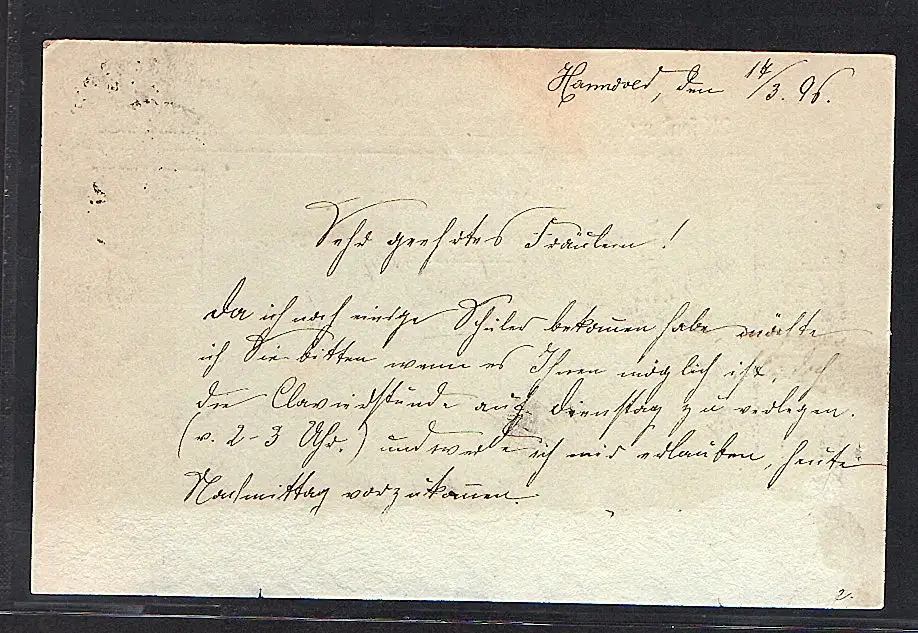 Hannover, den 14/3. 96.
Sehr geehrtes Fräulein!
Da ich noch einige Schüler bekommen habe möchte
ich Sie bitten wenn es Ihnen möglich ist,
die Clavierstunde auf Dienstag zu verlegen.
(v. 2-3 Uhr.) und werde ich mir erlauben, heute
Nachmittag vorzukommen.